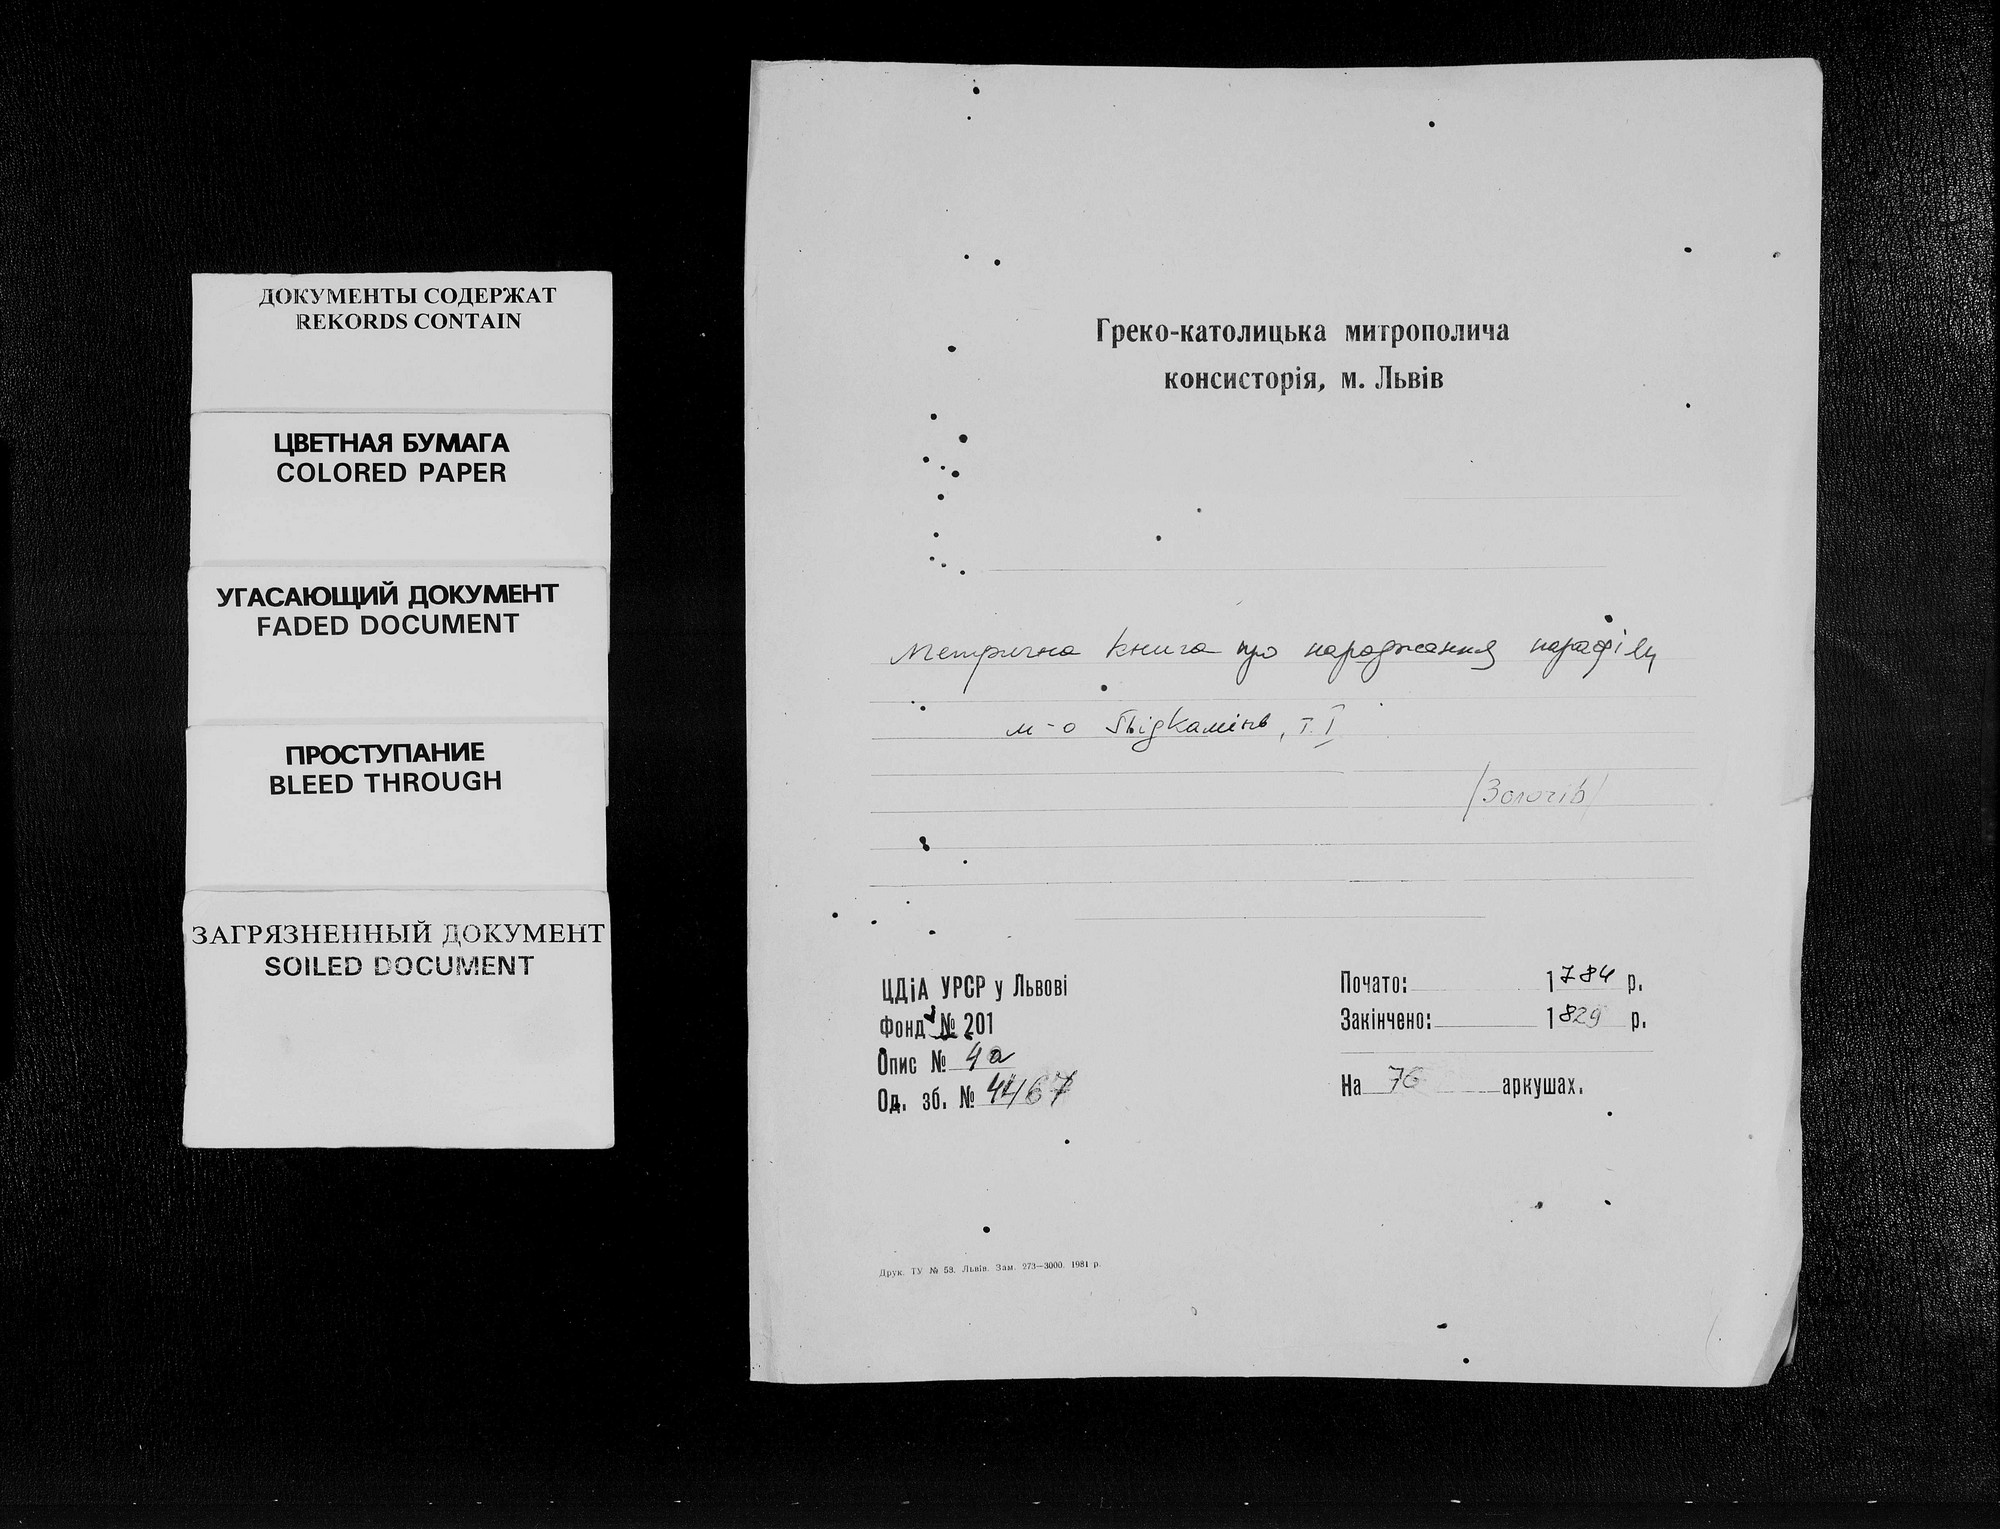 ДОКУМЕНТЫ СОДЕРЖАТ
REKORDS CONTAIN
ЦВЕТНАЯ БУМАГА
COLORED PAPER
УГАСАЮЩИЙ ДОКУМЕНТ
FADED DOCUMENT
ПРОСТУПАНИЕ
BLEED THROUGH
ЗАГРЯЗНЕННЫЙ ДОКУМЕНТ
SOILED DOCUMENT
Греко-католицька митрополича
консисторія, м. Львів
Метрична книга про народження парафіян
м-о Підкамінь, т. I
/Золочів/
ЦДіА УРСР у Львові
Фонд № 201
Опис № 4а
Од. зб. № 4467
Почато: 1784 р.
Закінчено: 1829 р.
На 76 аркушах.
Друк. ТУ № 58. Львів. Зам. 273—3000. 1981 р.